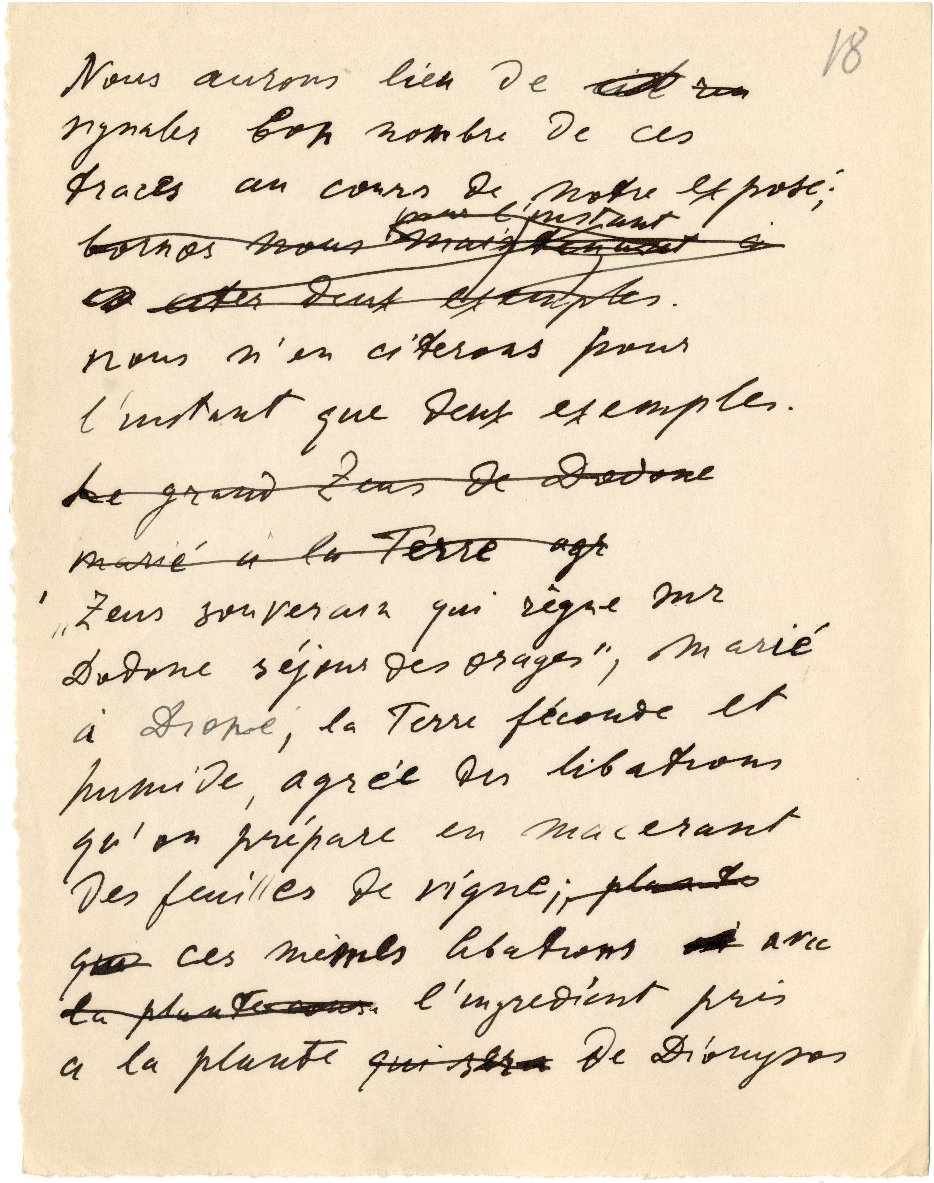 18
Nous aurons lieu de
signaler bon nombre de ces
traces au cours de notre exposé;
pour l'instant
bornos nous maintenant à
citer deux exemples.
nous n'en citerons pour
l'instant que deux exemples.
Le grand Zeus de Dodone
marié à la Terre agr
„Zeus souverain qui règne sur
Dodone séjour des orages", marié
à Diopé, la Terre féconde et
humide, agrée des libations
qu'on prépare en macerant
des feuilles de vigne; plants
que ces mêmes libations avec
la plante l'ingredient pris
a la plante qui sera de Dionysos